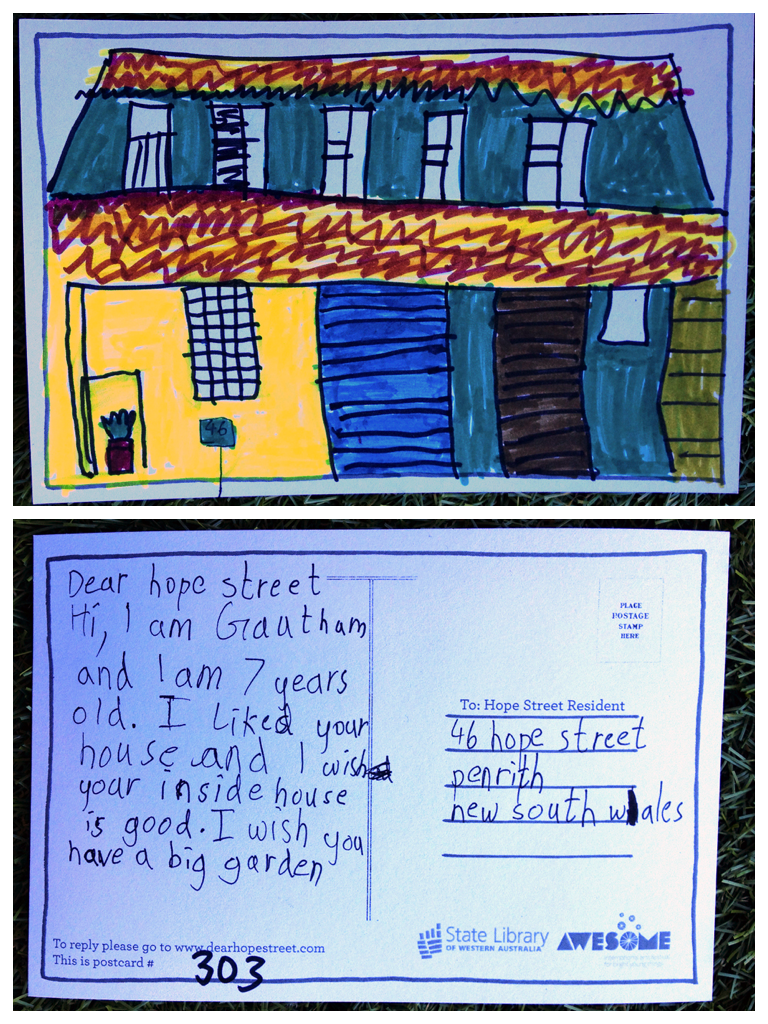 46
Dear hope street
Hi, I am Gautham
and I am 7 years
old. I Liked your
house and I wish
your inside house
is good. I wish you
have a big garden
PLACE
POSTAGE
STAMP
HERE
To: Hope Street Resident
46 hope street
penrith
new south wales
To reply please go to www.dearhopestreet.com
This is postcard # 303
State Library
OF WESTERN AUSTRALIA
AWESOME